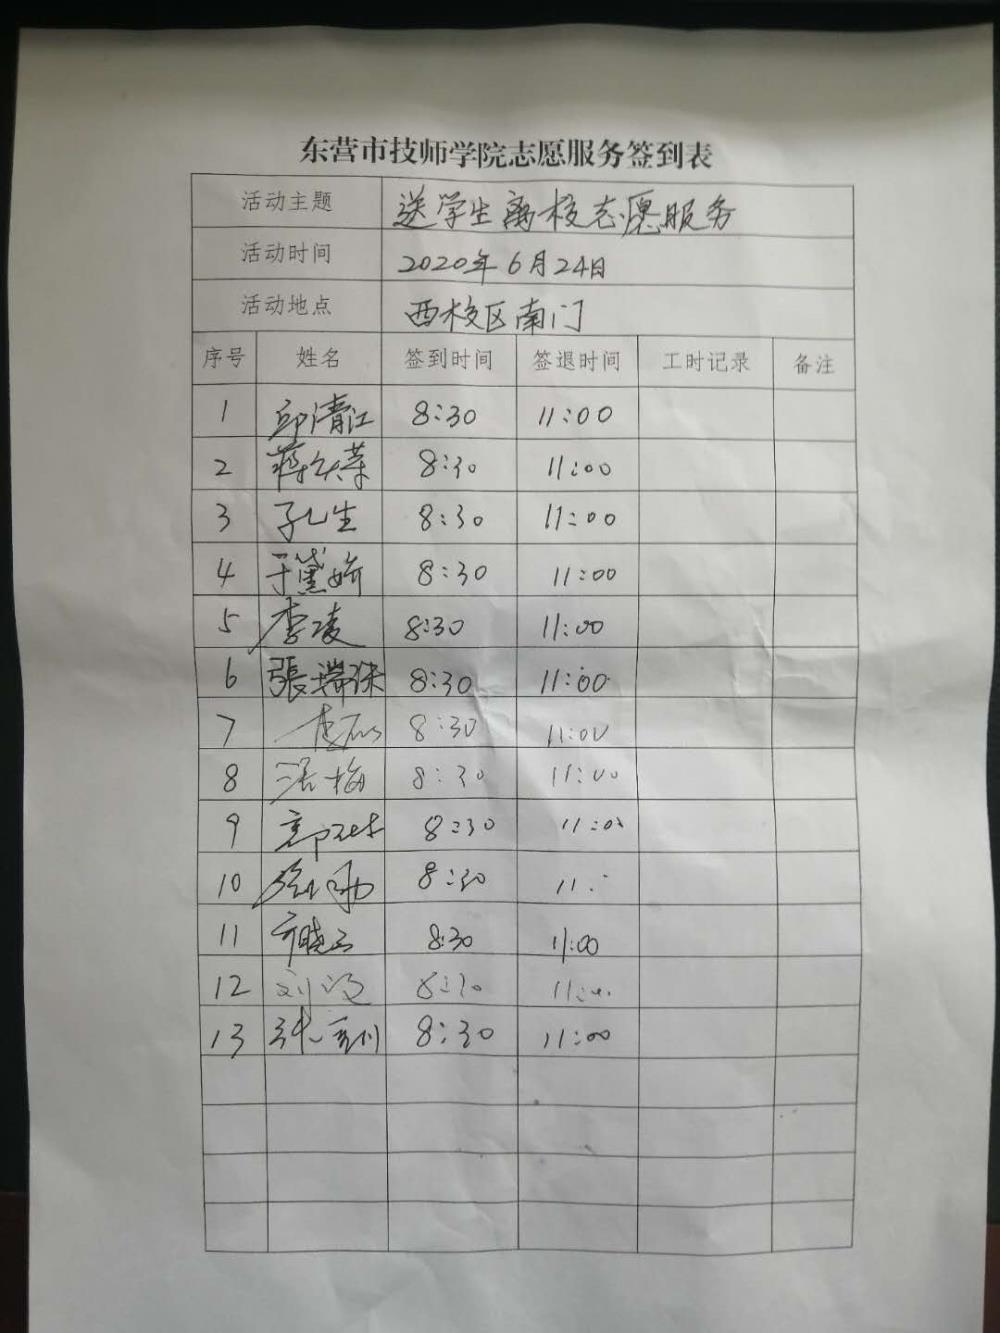 东营市技师学院志愿服务签到表
活动主题 送学生离校志愿服务
活动时间 2020年6月24日
活动地点 西校区南门
序号 姓名 签到时间 签退时间 工时记录 备注
1 邱清江 8:30 11:00
2 8:30 11:00
3 孔生 8:30 11:00
4 于黛娇 8:30 11:00
5 李凌 8:30 11:00
6 張瑞 8:30 11:00
7 8:30 11:00
8 8:30 11:00
9 8:30 11:00
10 8:30 11:
11 8:30 11:00
12 刘 8:30 11:00
13 张 8:30 11:00